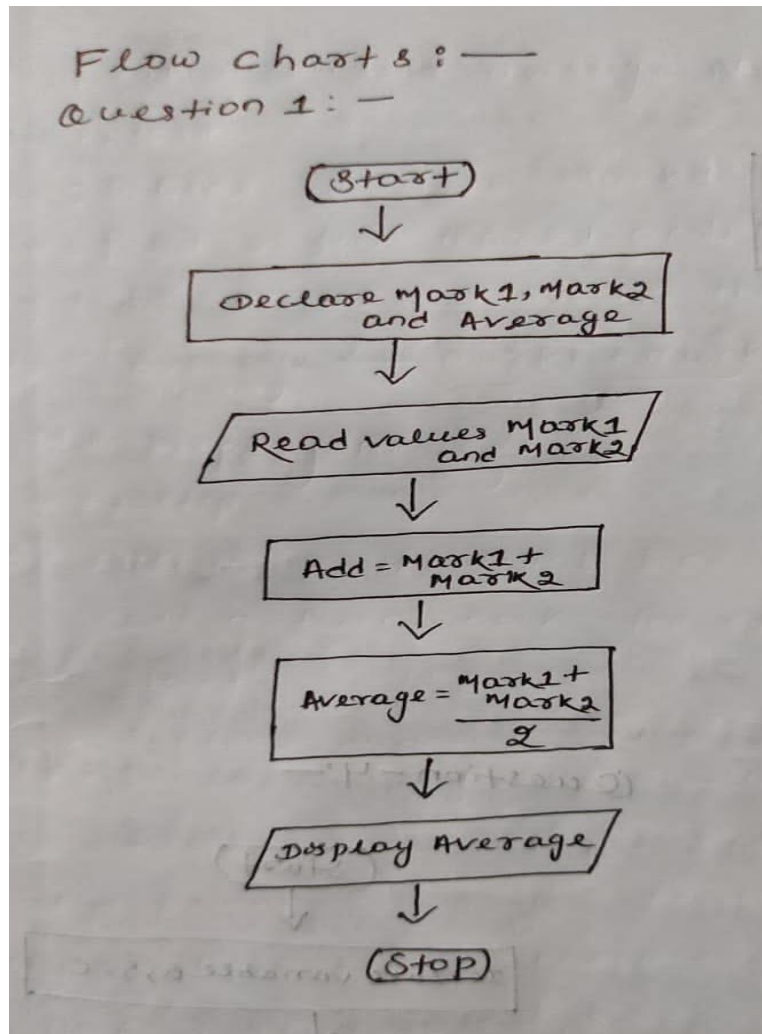 Flow charts : —
Question 1 : —
Start
Declare Mark1, Mark2
and Average
Read values Mark1
and Mark2
Add = Mark1 +
Mark2
Average = Mark1 +
Mark2
2
Display Average
Stop